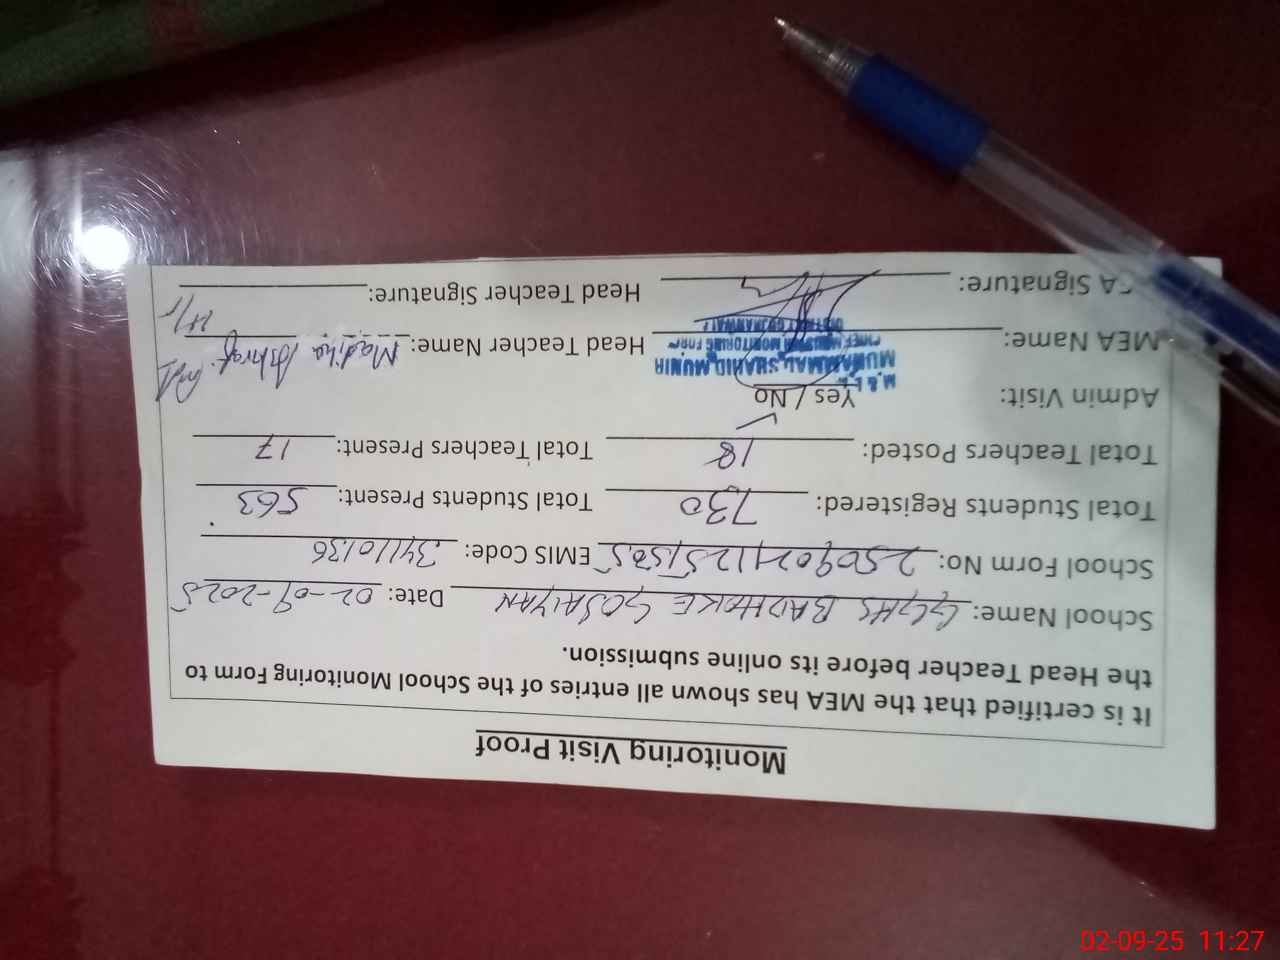 Monitoring Visit Proof
It is certified that the MEA has shown all entries of the School Monitoring Form to
the Head Teacher before its online submission.
School Name: GGHS BADHOKE GOSAIYAN Date: 02-09-2025
School Form No: 25090211251505 EMIS Code: 34110136
Total Students Registered: 730 Total Students Present: 563
Total Teachers Posted: 18 Total Teachers Present: 17
Admin Visit: Yes / No
M. & E.
MUHAMMAD SHAHID MUNIR
CHIEF MINISTER MONITORING FORCE
DISTRICT GUJRANWALA
MEA Name: Head Teacher Name: Madiha Ashraf.
CA Signature: Head Teacher Signature:
02-09-25 11:27